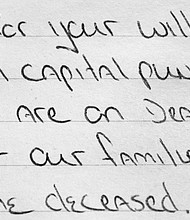 your will
capital pun
are on Dea
our familie
deceased